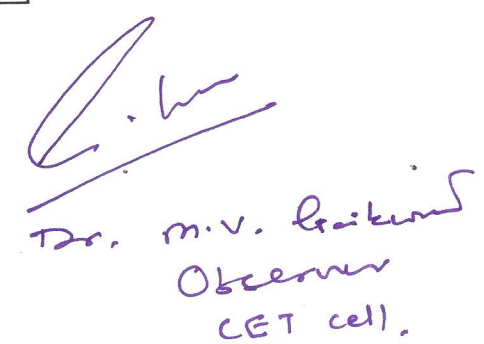 Dr. M.V. Gaikwad
Observer
CET cell.